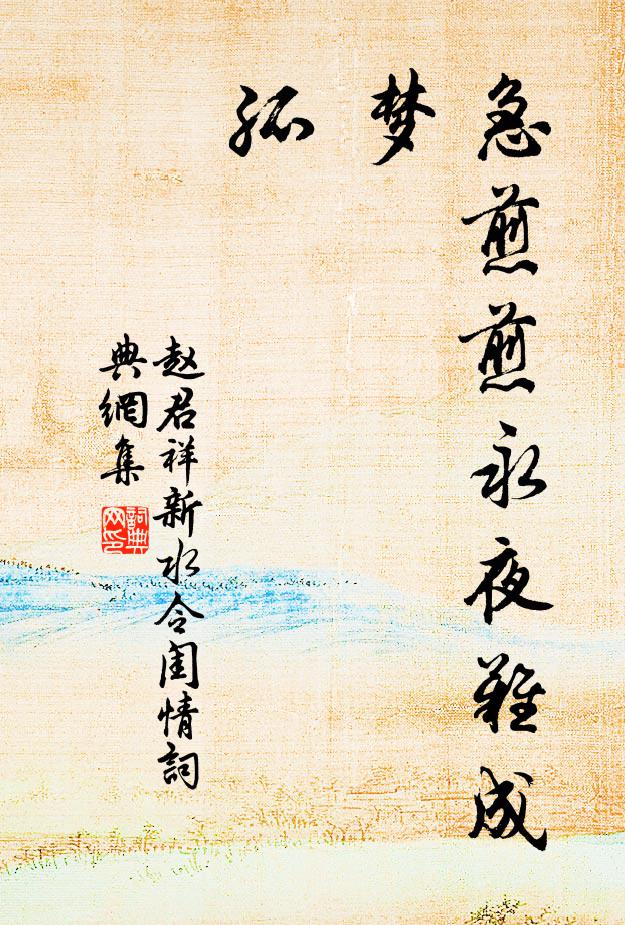 急煎煎永夜难成
梦
孤
赵君祥新水令闺情词
典網集
詞典
网印